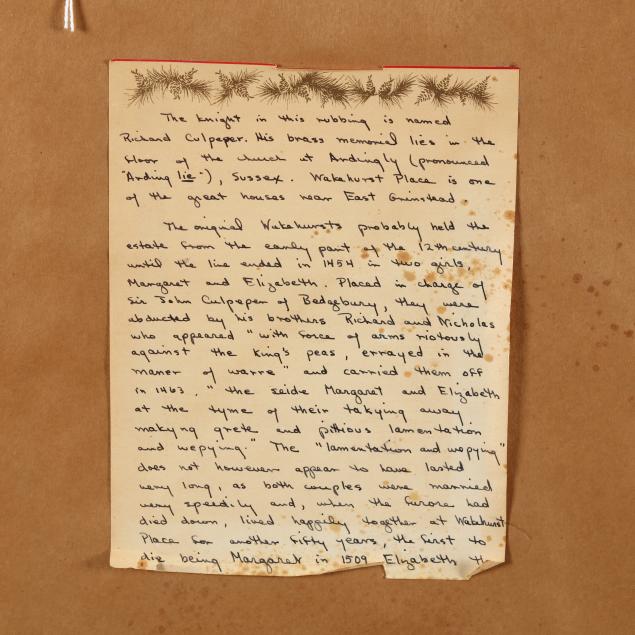 The knight in this rubbing is named
Richard Culpeper. His brass memorial lies in the
floor of the church at Ardingly (pronounced
"Arding lie"), Sussex. Wakehurst Place is one
of the great houses near East Grinstead.
The original Wakehursts probably held the
estate from the early part of the 12th century
until the line ended in 1454 in two girls,
Margaret and Elizabeth. Placed in charge of
Sir John Culpeper of Bedgebury, they were
abducted by his brothers Richard and Nicholas
who appeared "with force of arms riotously
against the King's peas, errayed in the
maner of warre" and carried them off
in 1463. "the seide Margaret and Elizabeth
at the tyme of their takying away
makyng grete and pittious lamentation
and wepying." The "lamentation and wepying"
does not however appear to have lasted
very long, as both couples were married
very speedily and, when the furore had
died down, lived happily together at Wakehurst
Place for another fifty years, the first to
die being Margaret in 1509 Elizabeth